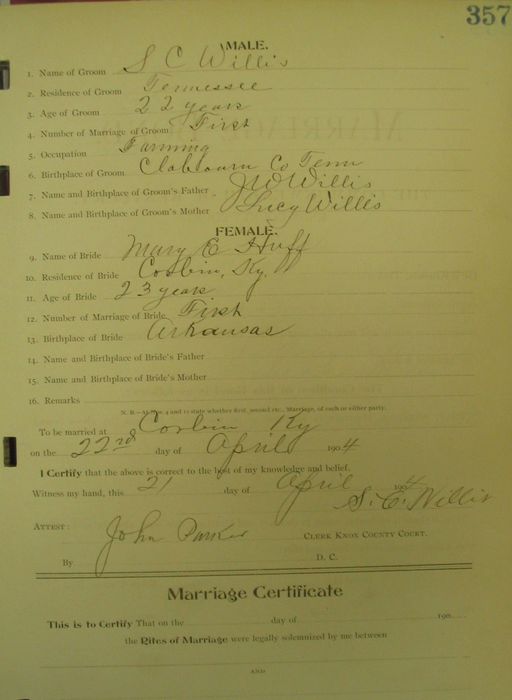 357
MALE.
1. Name of Groom S C Willis
2. Residence of Groom Tennessee
3. Age of Groom 22 years
4. Number of Marriage of Groom First
5. Occupation Farming
6. Birthplace of Groom Clabbourn Co Tenn
7. Name and Birthplace of Groom's Father J W Willis
8. Name and Birthplace of Groom's Mother Lucy Willis
FEMALE.
9. Name of Bride Mary E Huff
10. Residence of Bride Corbin, Ky.
11. Age of Bride 23 years
12. Number of Marriage of Bride First
13. Birthplace of Bride Arkansas
14. Name and Birthplace of Bride's Father
15. Name and Birthplace of Bride's Mother
16. Remarks
N. B.—At Nos. 4 and 12 state whether first, second etc., Marriage, of each or either party.
To be married at Corbin Ky
on the 22nd day of April 1904
I Certify that the above is correct to the best of my knowledge and belief.
Witness my hand, this 21 day of April 1904
S. C. Willis
ATTEST:
John Parker CLERK KNOX COUNTY COURT.
By D. C.
Marriage Certificate
This is to Certify That on the day of 190
the Rites of Marriage were legally solemnized by me between
AND